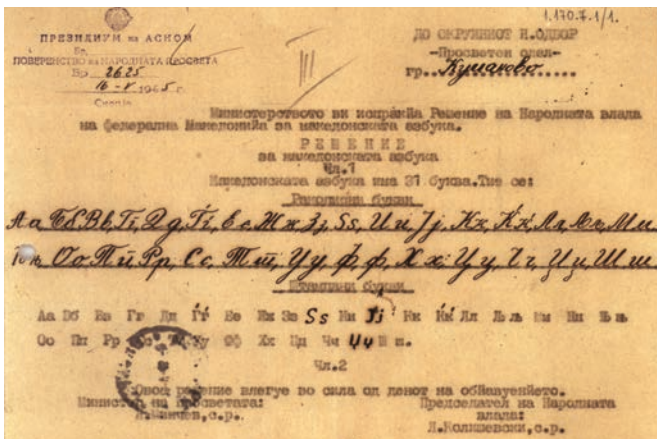 1.170.7.1/1.
ПРЕЗИДИУМ на АСНОМ
Бр.
ПОВЕРЕНСТВО на НАРОДНАТА ПРОСВЕТА
Бр 2625
16-V 1945 г.
Скопје
III
ДО ОКРУЖНИОТ Н.ОДБОР
-Просветен одел-
гр..Куманово......
Министерството ви испраќа Решение на Народната влада
на федерална Македонија за македонската азбука.
РЕШЕНИЕ
за македонската азбука
Чл.1
Македонската азбука има 31 буква.Тие се:
Ракописни букви
Аа, Бб, Вв, Гг, Дд, Ѓѓ, Ее, Жж, Зз, Ѕѕ, Ии, Јј, Кк, Ќќ, Лл, Љљ, Мм
Њњ, Оо, Пп, Рр, Сс, Тт, Уу, Фф, Хх, Цц, Чч, Џџ, Шш
Штампани букви
Аа Бб Вв Гг Дд Ѓѓ Ее Жж Зз Ѕѕ Ии Јј Кк Ќќ Лл Љљ Мм Нн Њњ
Оо Пп Рр Сс Тт Уу Фф Хх Цц Чч Џџ Шш.
Чл.2
Овој решение влегуе во сила од денот на обйавуењето.
Министер на Просветата:
Председател на Народната
влада:
с.р.
Л.Колишевски,с.р.